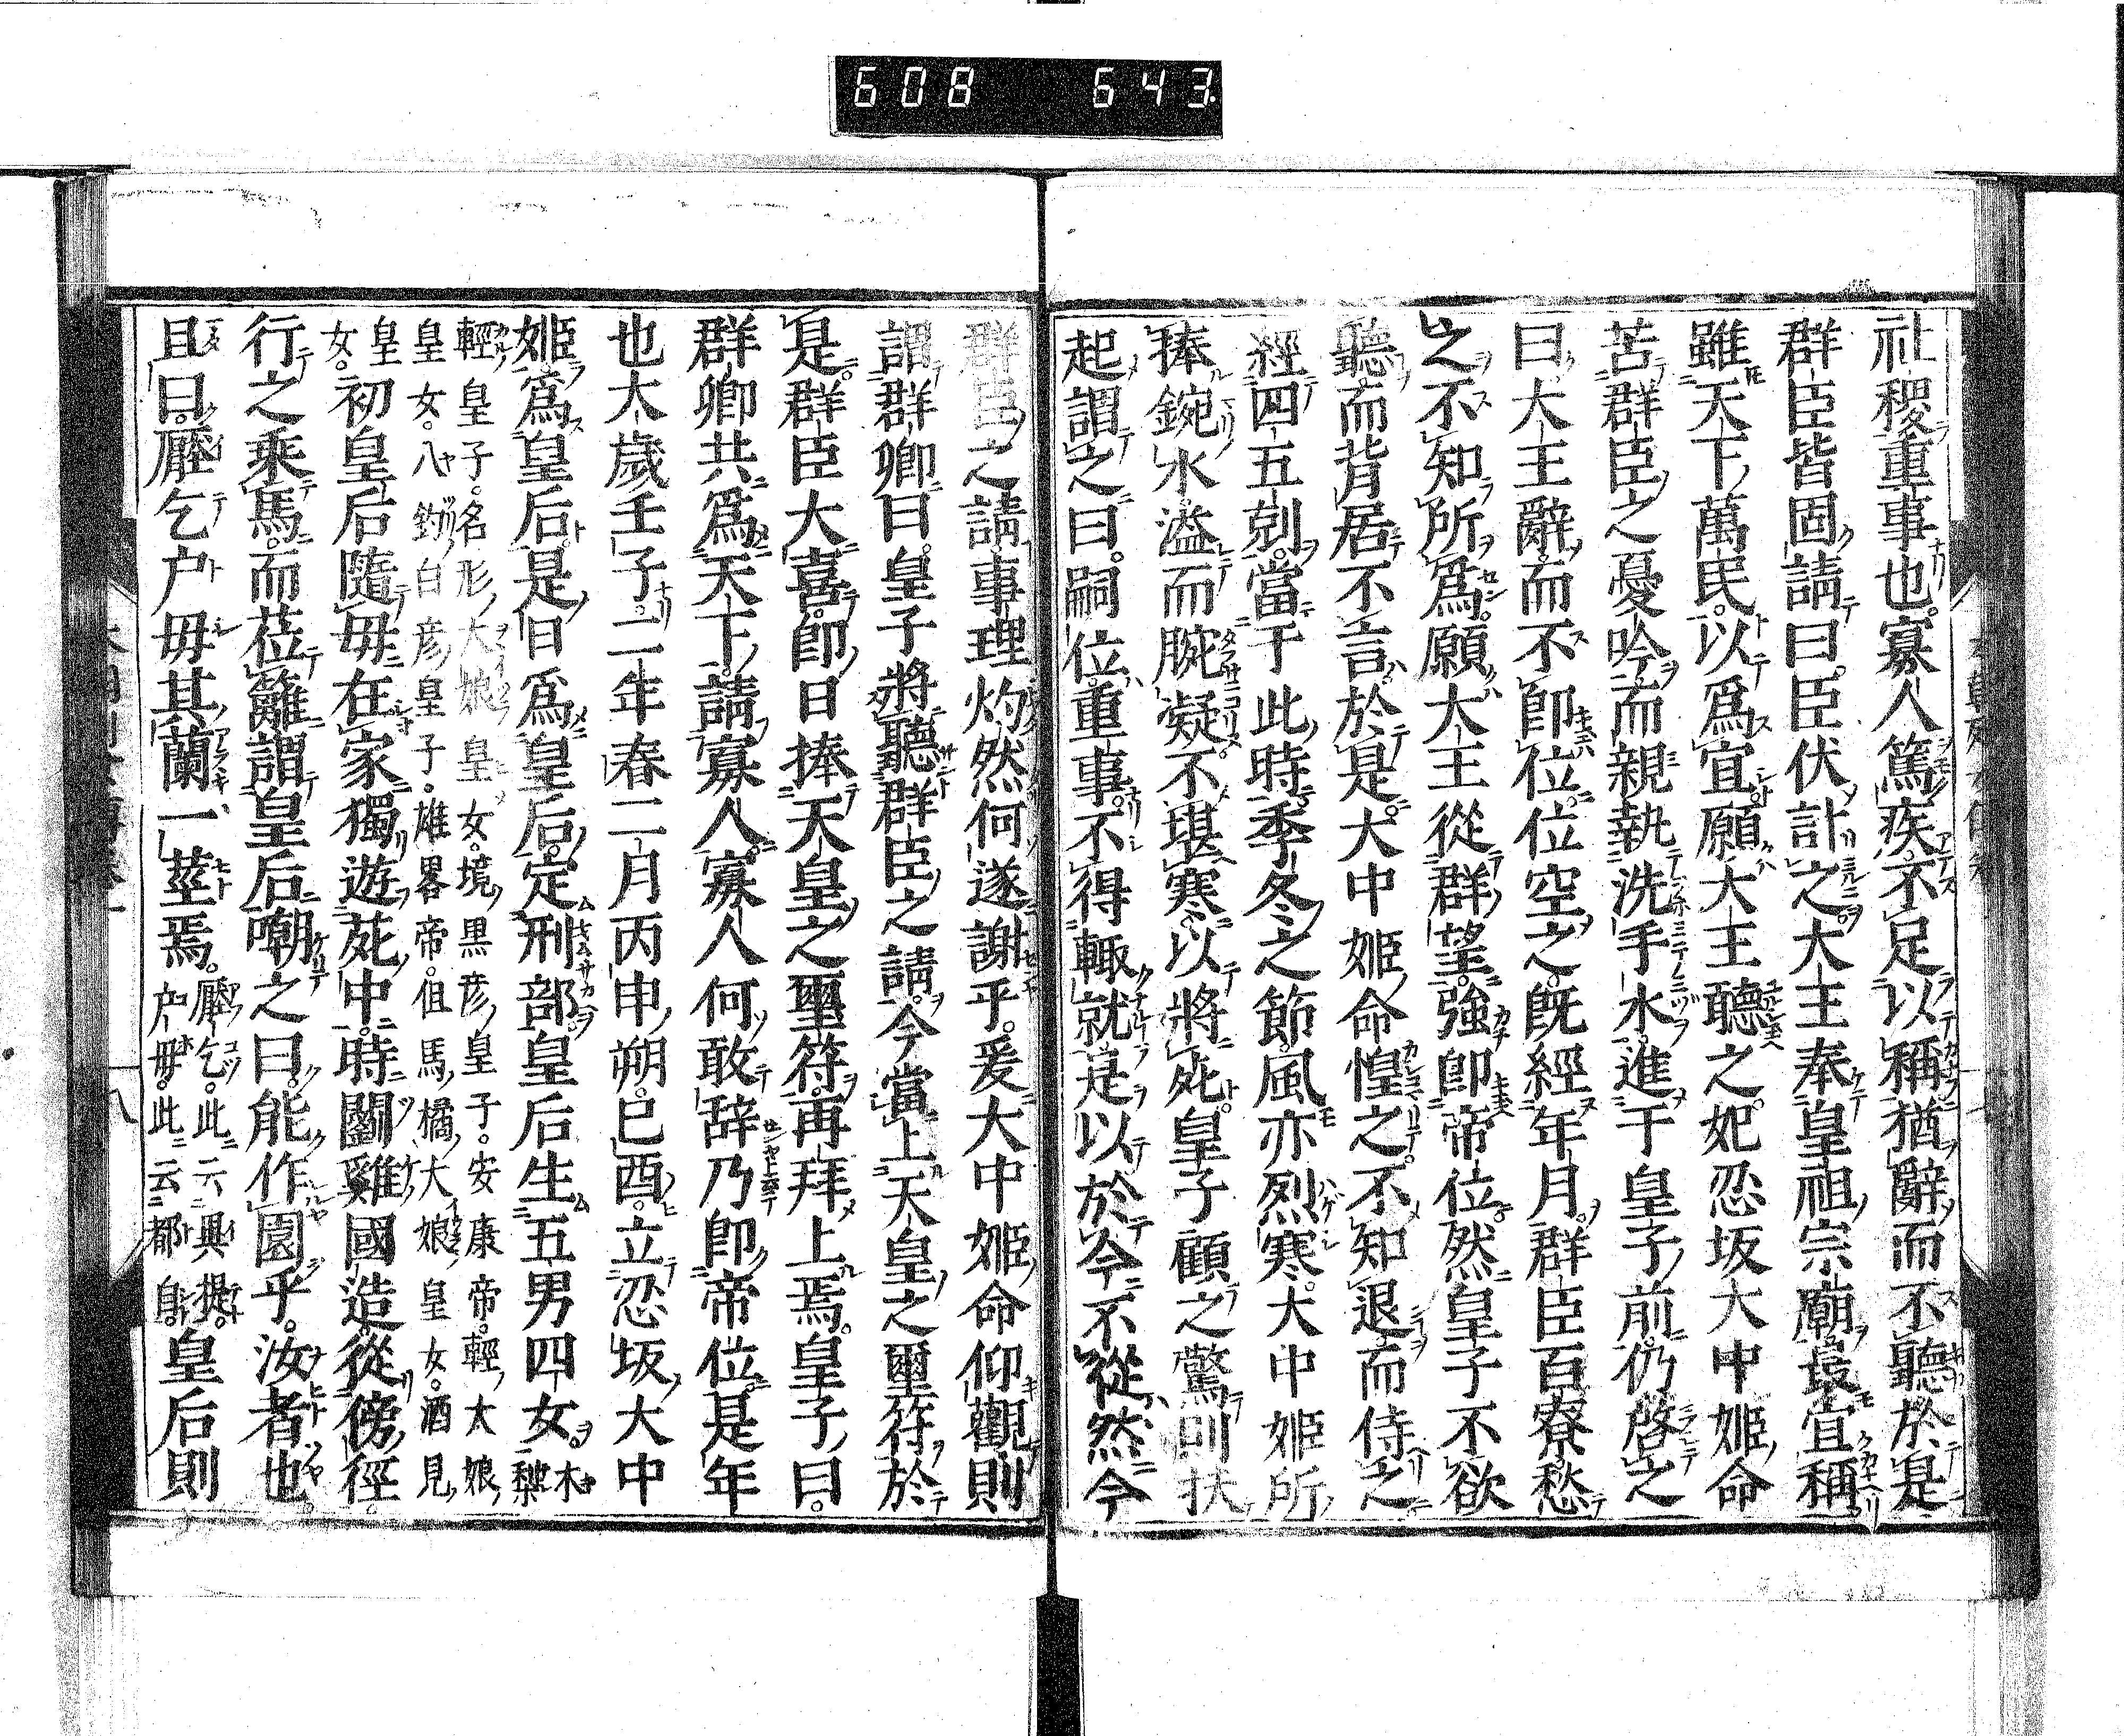 608 643
社稷重事也。寡人篤疾。不足以稱。猶辭而不聽。於是
群臣皆固請曰。臣伏計之。大王奉皇祖宗廟。最宜稱
雖天下萬民。以爲宜。願大王聽之。妃忍坂大中姬命
苦群臣之憂吟。而親執洗手水。進于皇子前。仍啓之
曰。大王辭而不即位。位空之。既經年月。群臣百寮愁
之不知所爲。願大王從群望。強即帝位。然皇子不欲
聽。而背居不言。於是。大中姬命惶之。不知退而侍之
經四五剋。當于此時。季冬之節。風亦烈寒。大中姬所
捧鋺水。溢而腕凝。不堪寒。以將死。皇子顧之驚。則扶
起謂之曰。嗣位重事。不得輙就。是以於今不從。然今
群臣之請。事理灼然。何遂謝乎。爰大中姬命仰觀。則
謂群卿曰。皇子將聽群臣之請。今當上天皇之璽符。於
是。群臣大喜。即日捧天皇之璽符。再拜上焉。皇子曰。
群卿共爲天下。請寡人。寡人何敢辞。乃即帝位。是年
也大歲壬子。二年春二月丙申朔。巳酉。立忍坂大中
姬爲皇后。是日爲皇后。定刑部。皇后生五男四女。木梨
輕皇子。名形大娘皇女。境黒彦皇子。安康帝。輕大娘
皇女。八釣白彦皇子。雄畧帝。但馬橘大娘皇女。酒見
皇女。初皇后隨母在家。獨遊苑中。時鬪雞國造從傍徑
行之。乘馬而莅籬。謂皇后嘲之曰。能作園乎。汝者也。
且曰。壓乞戸母其蘭一莖焉。壓乞。此云異提。戸母。此云都自。皇后則